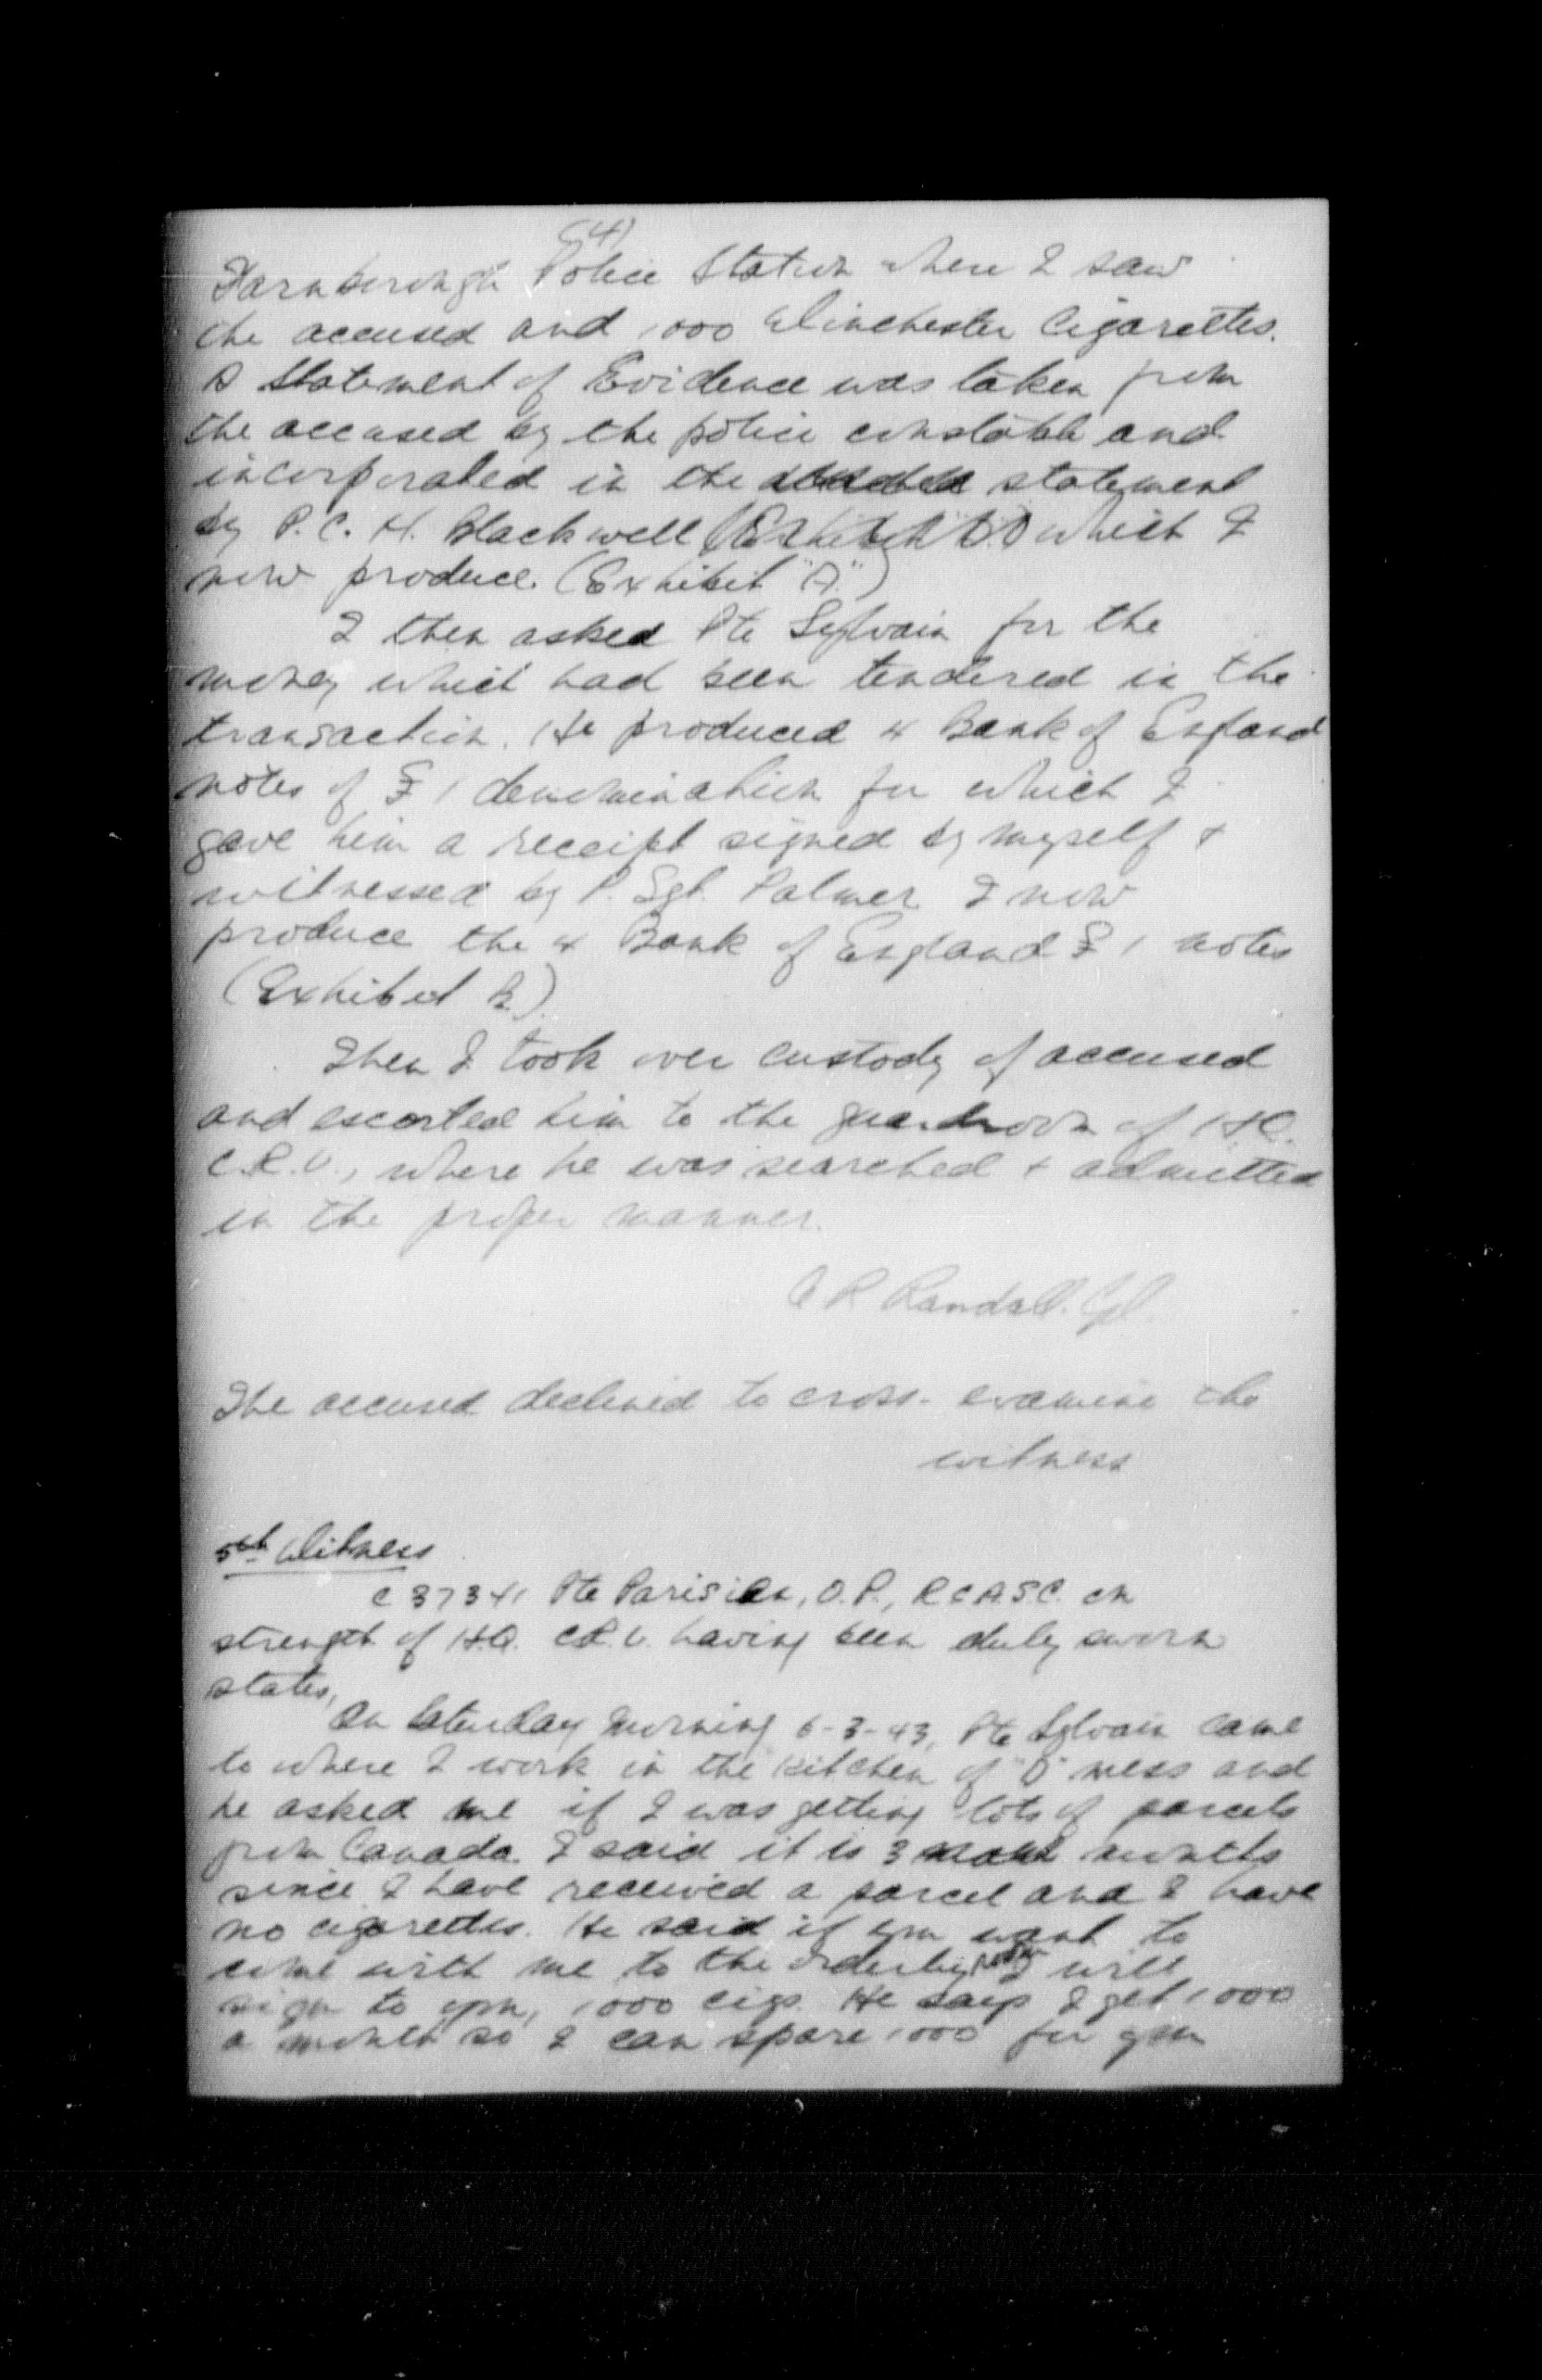 (4)
Farnborough Police Station where I saw
the accused and 1000 Winchester Cigarettes.
A Statement of Evidence was taken from
the accused by the police constable and
incorporated in the statement
by P.C. H. Blackwell which I
now produce. (Exhibit "A")
I then asked Pte Sylvain for the
money which had been tendered in the
transaction. He produced 4 Bank of England
notes of £1 denomination for which I
gave him a receipt signed by myself +
witnessed by P. Sgt. Palmer I now
produce the 4 Bank of England £1 notes
(Exhibit B).
Then I took over custody of accused
and escorted him to the guardroom of H.Q.
C.R.U., where he was searched + admitted
in the proper manner.
C R Randall. Cpl.
The accused declined to cross-examine the
witness
5th Witness
C 37341 Pte Parisien, O.P., R.C.A.S.C. on
strength of H.Q. C.R.U. having been duly sworn
states,
On Saturday morning 6-3-43, Pte Sylvain came
to where I work in the kitchen of "D" mess and
he asked me if I was getting lots of parcels
from Canada. I said it is 3 months
since I have received a parcel and I have
no cigarettes. He said if you want to
come with me to the orderly room I will
sign to you, 1000 cigs. He says I get 1000
a month so I can spare 1000 for you